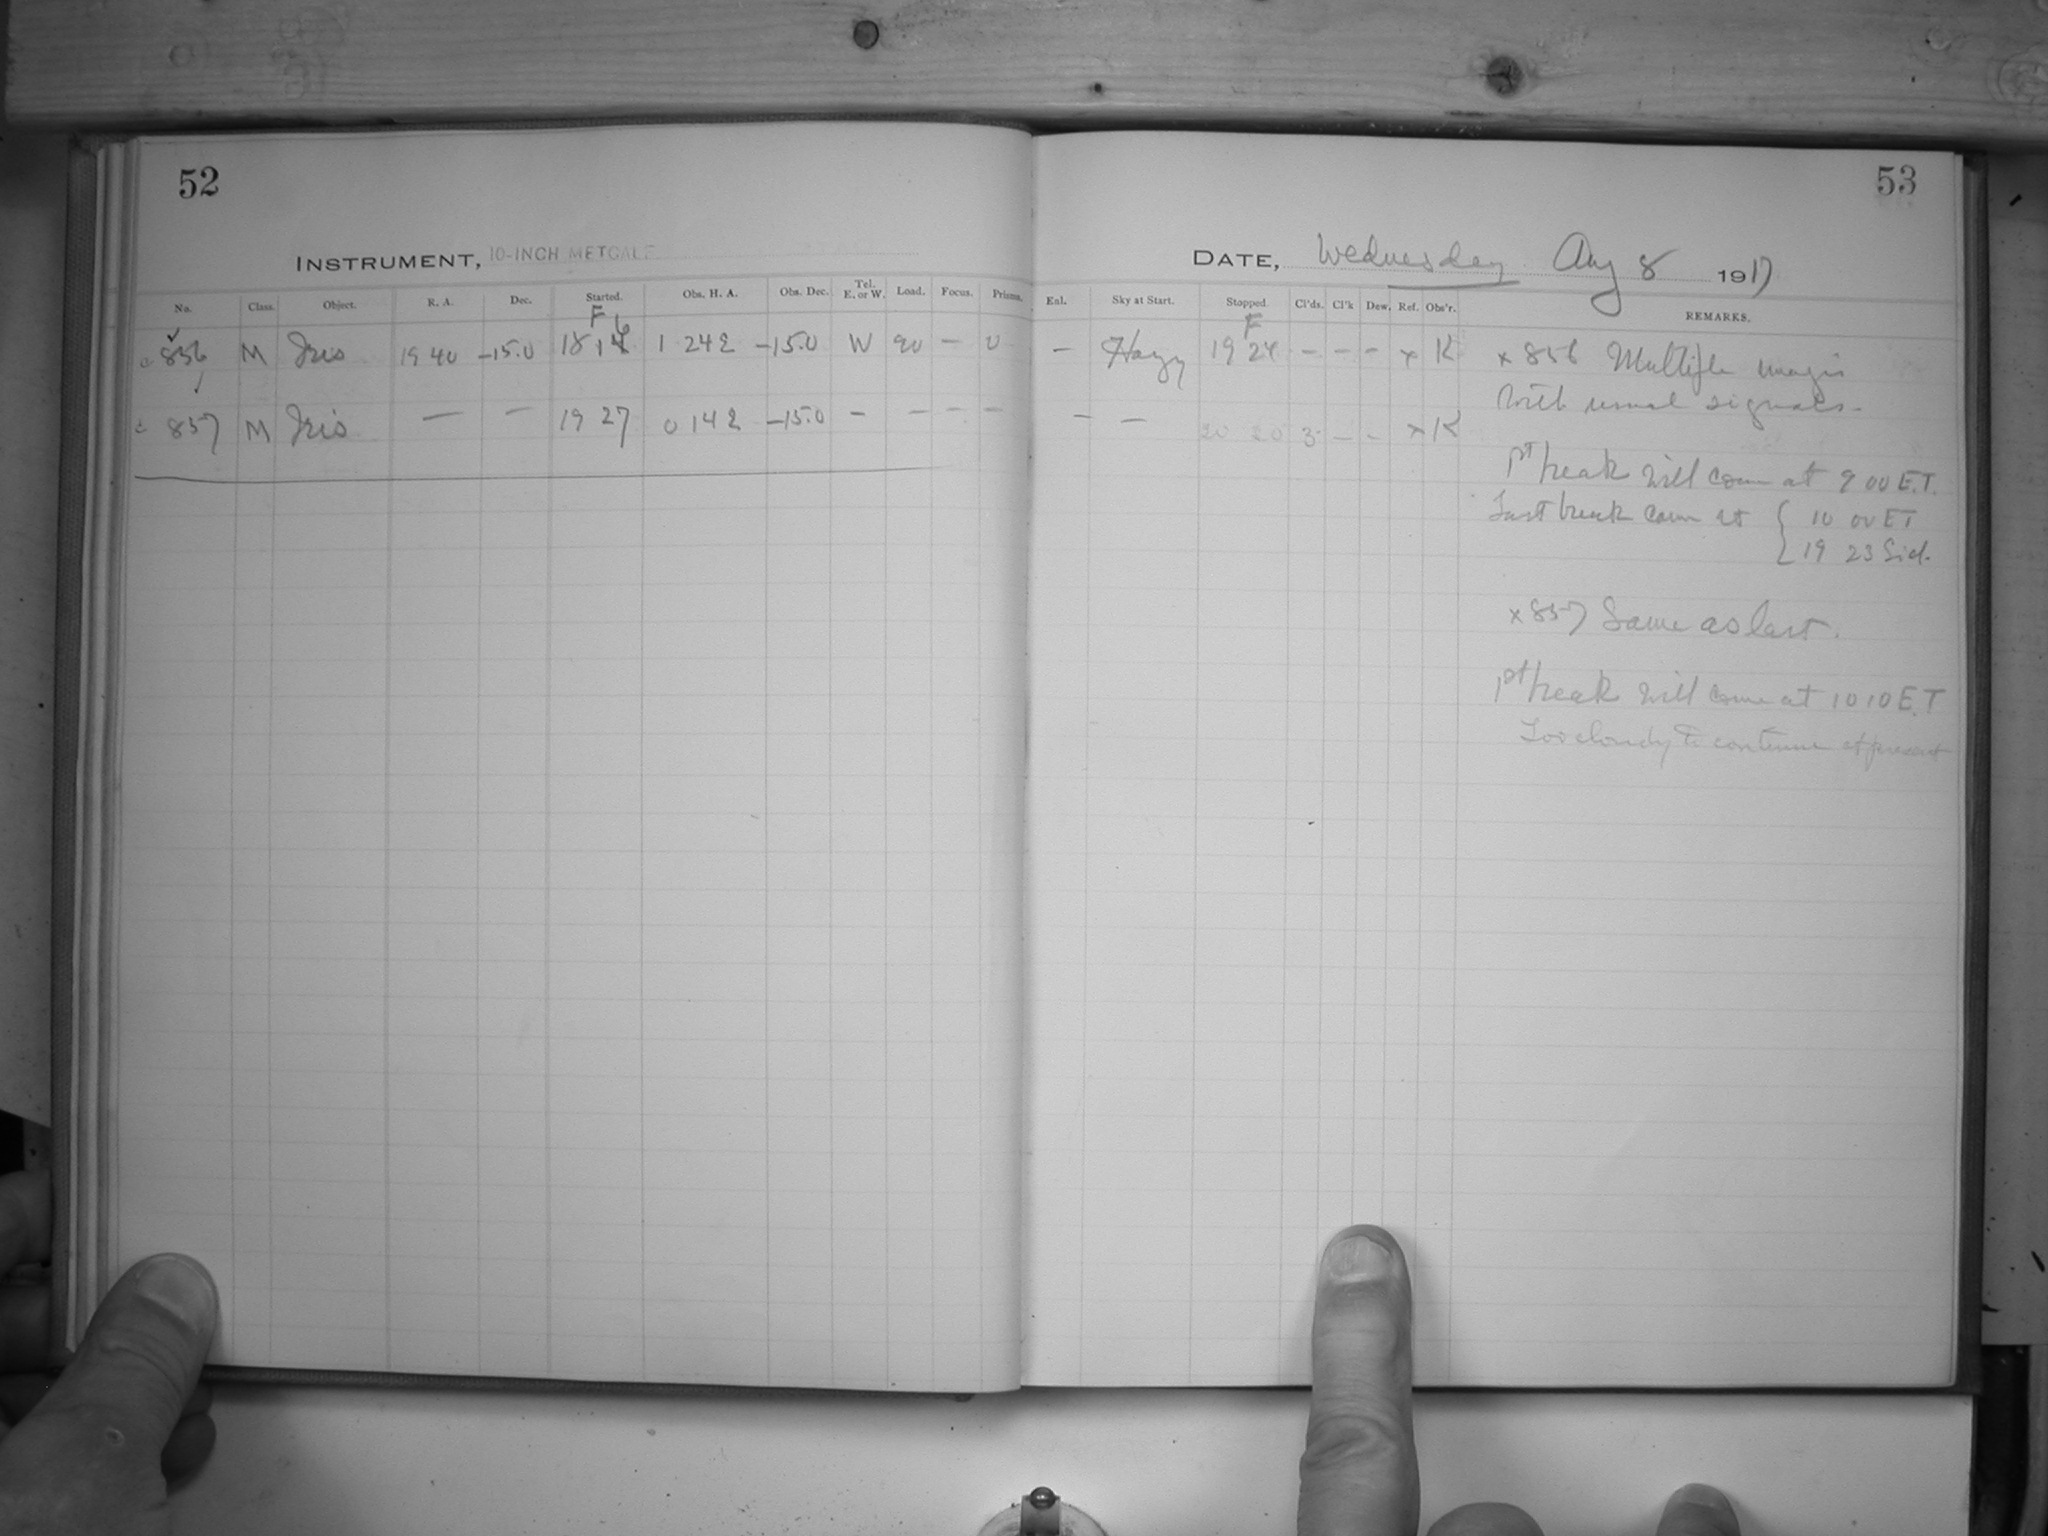 52
53
INSTRUMENT, 10-INCH METCALF
DATE, Wednesday Aug 8 1917
No. Class. Object. R. A. Dec. Started. Obs. H. A. Obs. Dec. Tel. E. or W. Load. Focus. Prisms. Enl. Sky at Start. Stopped. Cl'ds. Cl'k Dew. Ref. Obs'r. REMARKS.
F F
c 856 M Iris 19 40 -15.0 18 16 1 24 E -15.0 W 90 - 0 - Hazy 19 24 - - - x K
c 857 M Iris — — 19 27 0 14 E -15.0 - - - - - - 20 20 3 - - x K
x 856 Multiple images
with usual signals.
1st break will come at 9 00 E.T.
Last break came at { 10 00 ET
{ 19 23 Sid.
x 857 Same as last.
1st break will come at 10 10 E.T
Too cloudy to continue at present